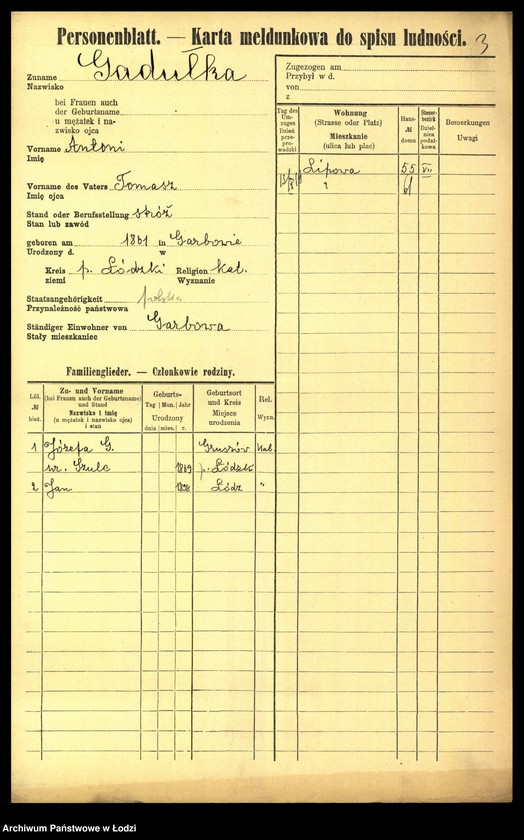 Personenblatt. — Karta meldunkowa do spisu ludności. 3
Zuname Gadułka
Nazwisko
bei Frauen auch
der Geburtsname
u mężatek i na-
zwisko ojca
Vorname Antoni
Imię
Vorname des Vaters Tomasz
Imię ojca
Stand oder Berufsstellung stróż
Stan lub zawód
geboren am 1861 in Garbowie
Urodzony d. w
Kreis p. Łódzki Religion kat.
ziemi Wyznanie
Staatsangehörigkeit polska
Przynależność państwowa
Ständiger Einwohner von Garbowa
Stały mieszkaniec
Zugezogen am
Przybył w d.
von
z
Tag des Um-zuges Dzień prze-prowadzki
Wohnung (Strasse oder Platz) Mieszkanie (ulica lub plac)
Haus- № domu
Steuer-bezirk Dziel-nica podat-kowa
Bemerkungen Uwagi
Lipowa 55 VII
" 61
Familienglieder. — Członkowie rodziny.
Lfd. № bież.
Zu- und Vorname (bei Frauen auch der Geburtsname) und Stand Nazwisko i imię (u mężatek i nazwisko ojca) i stan
Geburts- Tag Mon. Jahr Urodzony dnia mies. r.
Geburtsort und Kreis Miejsce urodzenia
Rel. Wyzn.
1 Józefa G. kat.
ur. Szulc 1869 p. Łódzki
2 Jan Łódź "
Archiwum Państwowe w Łodzi